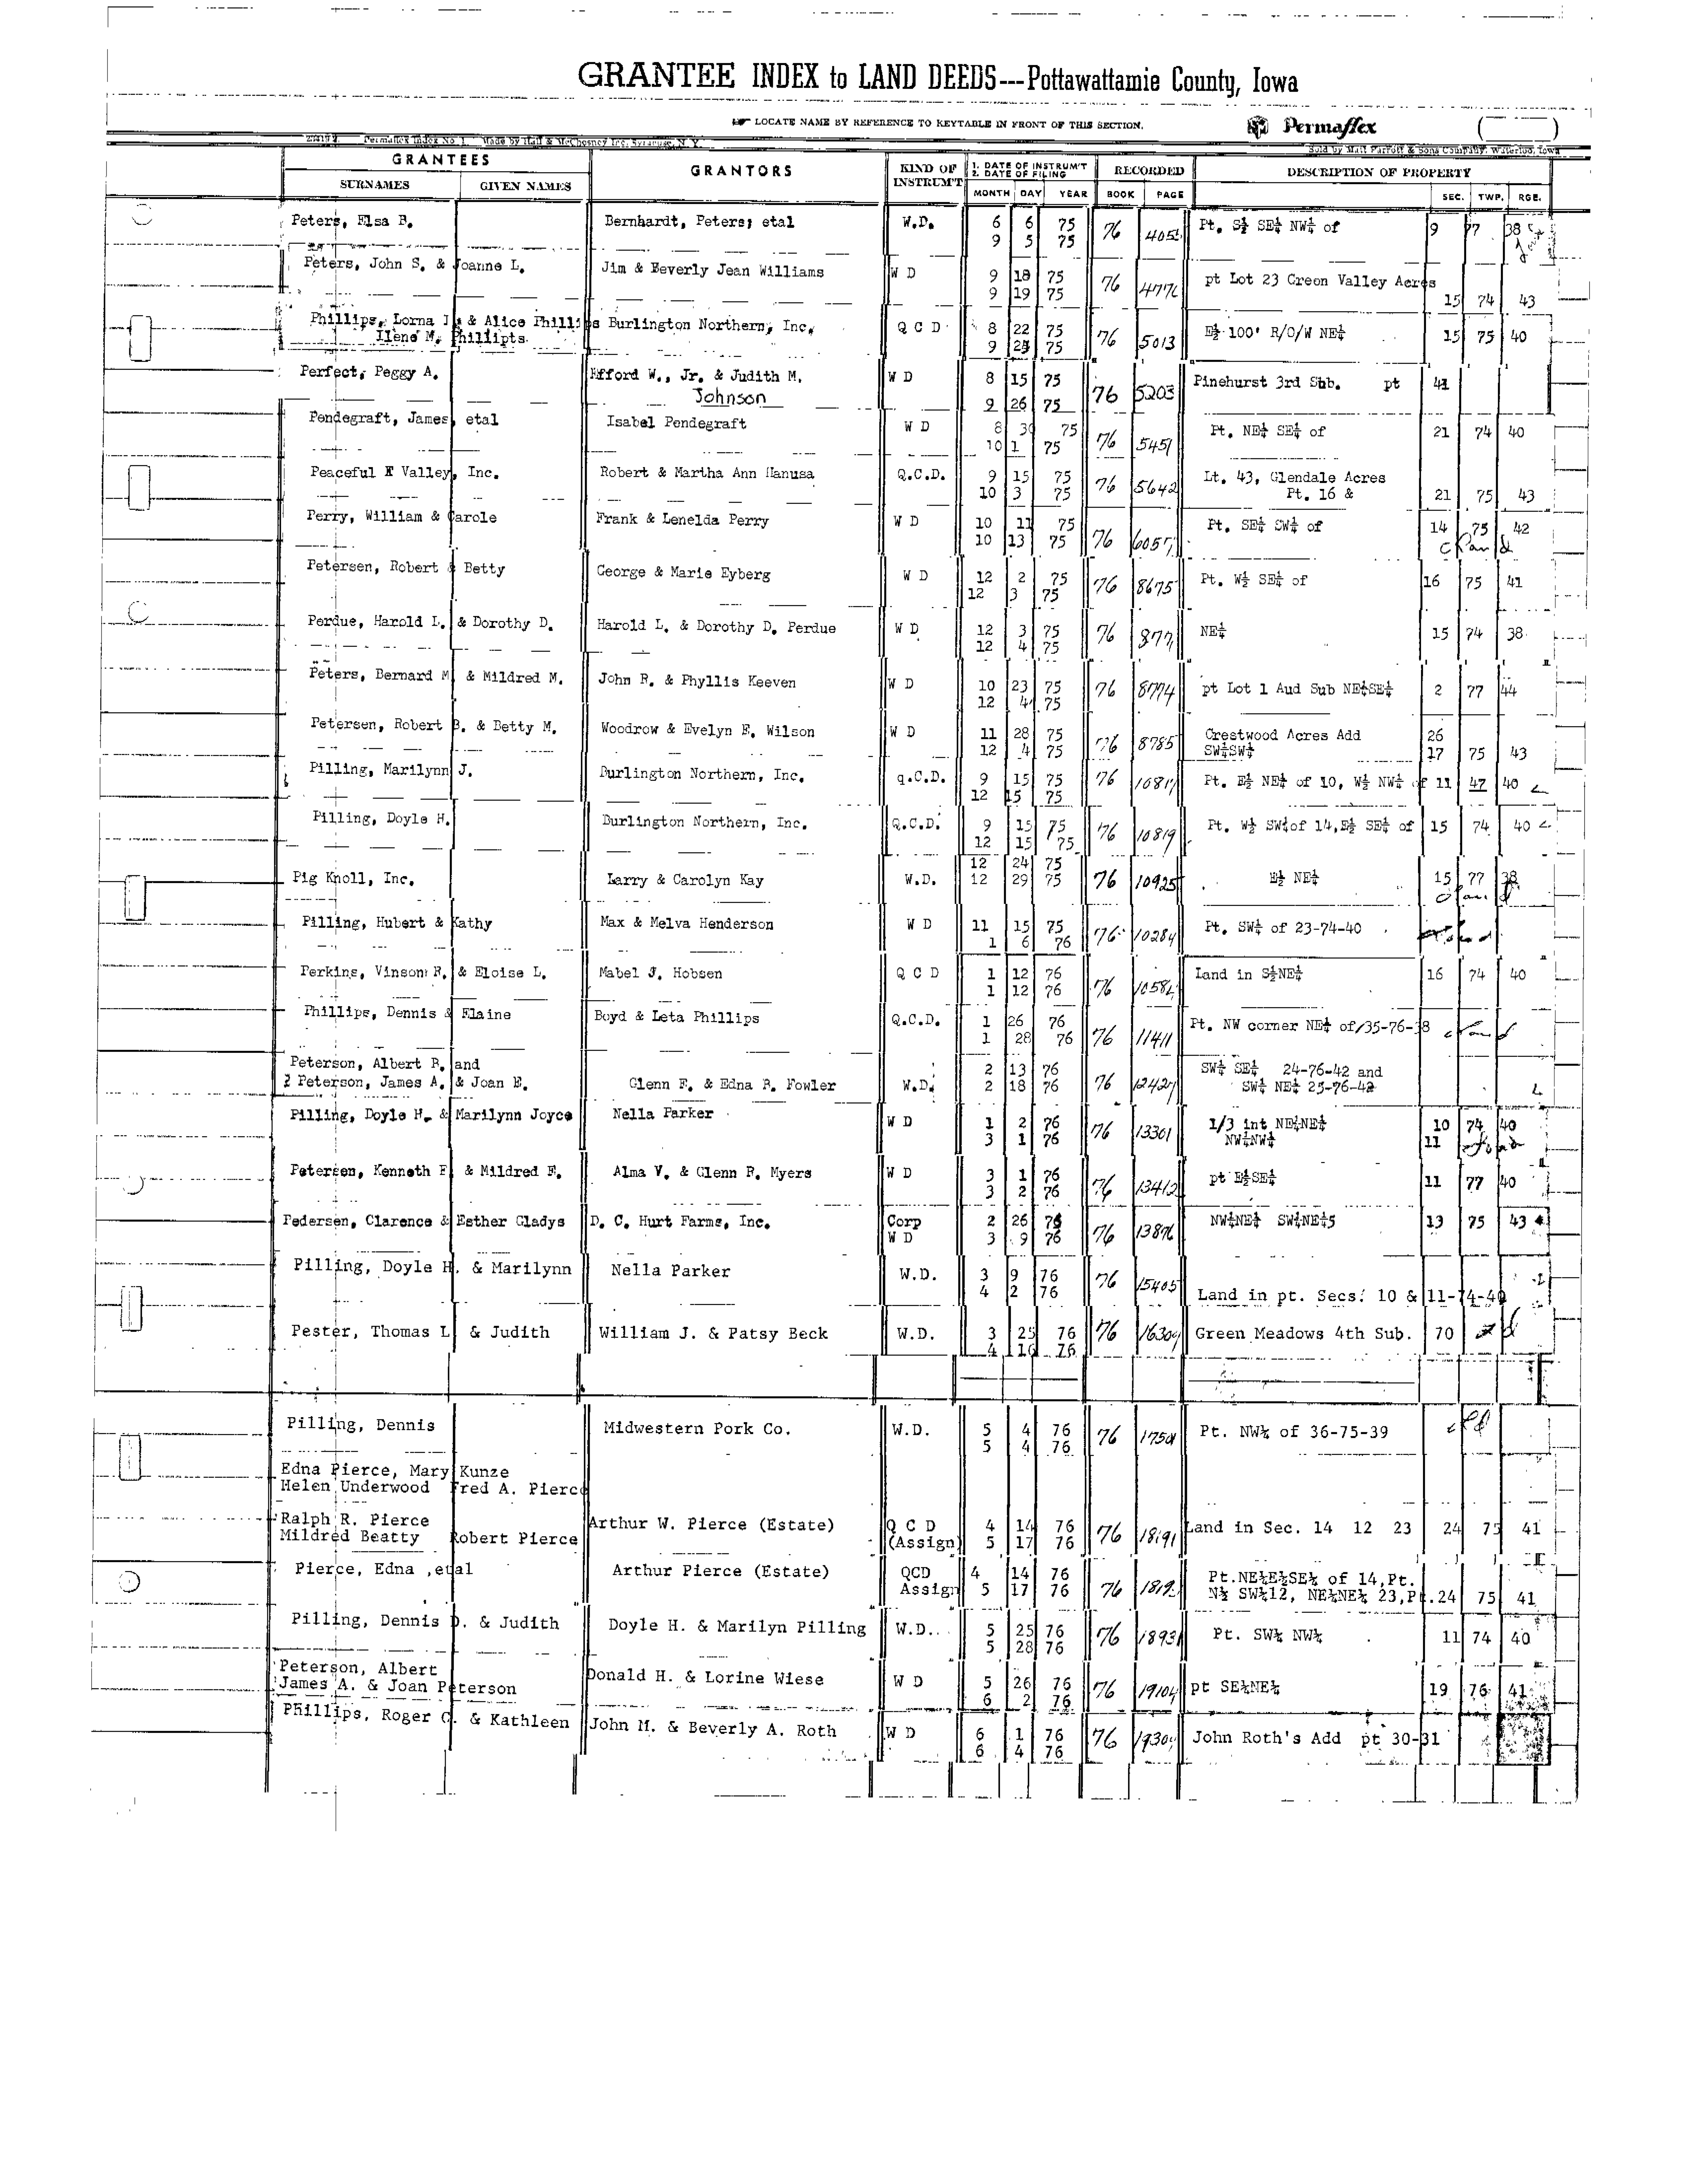 GRANTEE INDEX to LAND DEEDS---Pottawattamie County, Iowa
LOCATE NAME BY REFERENCE TO KEYTABLE IN FRONT OF THIS SECTION.
Permaflex
Permaflex Index No. 1 Made by Hall & McChesney Inc. Syracuse, N. Y.
Sold by Matt Parrott & Sons Company, Waterloo, Iowa
GRANTEES GRANTORS KIND OF INSTRUM'T 1. DATE OF INSTRUM'T 2. DATE OF FILING RECORDED DESCRIPTION OF PROPERTY
SURNAMES GIVEN NAMES MONTH DAY YEAR BOOK PAGE SEC. TWP. RGE.
Peters, Elsa B. Bernhardt, Peters; etal W.D. 6 6 75 76 Pt. S½ SE¼ NW¼ of 9 77 38
9 5 75
Peters, John S. & Joanne L. Jim & Beverly Jean Williams W D 9 18 75 76 pt Lot 23 Green Valley Acres
9 19 75 15 74 43
Phillips, Lorna & Alice Phillips Burlington Northern, Inc. Q C D 8 22 75 76 5013 E½ 100' R/O/W NE¼ 15 75 40
Ilene M. Phillipts 9 75
Perfect, Peggy A. Efford W., Jr. & Judith M. W D 8 15 75 76 5203 Pinehurst 3rd Sub. pt 41
Johnson 9 26 75
Pendegraft, James, etal Isabel Pendegraft W D 8 30 75 76 5451 Pt. NE¼ SE¼ of 21 74 40
10 1 75
Peaceful Valley, Inc. Robert & Martha Ann Hanusa Q.C.D. 9 15 75 76 5642 Lt. 43, Glendale Acres
10 3 75 Pt. 16 & 21 75 43
Perry, William & Carole Frank & Lenelda Perry W D 10 11 75 76 6057 Pt. SE¼ SW¼ of 14 75 42
10 13 75
Petersen, Robert & Betty George & Marie Eyberg W D 12 2 75 76 8675 Pt. W½ SE¼ of 16 75 41
12 3 75
Perdue, Harold L. & Dorothy D. Harold L. & Dorothy D. Perdue W D 12 3 75 76 NE¼ 15 74 38
12 4 75
Peters, Bernard M & Mildred M. John R. & Phyllis Keeven W D 10 23 75 76 8774 pt Lot 1 Aud Sub NE¼SE¼ 2 77 44
12 4 75
Petersen, Robert B. & Betty M. Woodrow & Evelyn F. Wilson W D 11 28 75 76 8785 Crestwood Acres Add 26
12 4 75 SW¼SW¼ 17 75 43
Pilling, Marilynn J. Burlington Northern, Inc. Q.C.D. 9 15 75 76 Pt. E½ NE¼ of 10, W½ NW¼ of 11 47 40
12 15 75
Pilling, Doyle H. Burlington Northern, Inc. Q.C.D. 9 15 75 76 10819 Pt. W½ SW¼of 14,E½ SE¼ of 15 74 40
12 15 75
12 24 75
Pig Knoll, Inc. Larry & Carolyn Kay W.D. 12 29 75 76 10925 E½ NE¼ 15 77 38
Pilling, Hubert & Kathy Max & Melva Henderson W D 11 15 75 76 10284 Pt. SW¼ of 23-74-40
1 6 76
Perkins, Vinson R. & Eloise L. Mabel J. Hobsen Q C D 1 12 76 76 Land in S½NE¼ 16 74 40
1 12 76
Phillips, Dennis & Elaine Boyd & Leta Phillips Q.C.D. 1 26 76 76 11411 Pt. NW corner NE¼ of 35-76-38
1 28 76
Peterson, Albert R. and 2 13 76 SW¼ SE¼ 24-76-42 and
Peterson, James A. & Joan E. Glenn F. & Edna R. Fowler W.D. 2 18 76 76 SW¼ NE¼ 25-76-42
Pilling, Doyle H. & Marilynn Joyce Nella Parker W D 1 2 76 76 13301 1/3 int NE¼NE¼ 10 74 40
3 1 76 NW¼NW¼ 11
Petersen, Kenneth F & Mildred F. Alma V. & Glenn R. Myers W D 3 1 76 76 13412 pt E½SE¼ 11 77 40
3 2 76
Pedersen, Clarence & Esther Gladys D. C. Hurt Farms, Inc. Corp 2 26 76 76 NW¼NE¼ SW¼NE¼5 13 75 43
W D 3 9 76
Pilling, Doyle H. & Marilynn Nella Parker W.D. 3 9 76 76 15405
4 2 76 Land in pt. Secs. 10 & 11-74-40
Pester, Thomas L & Judith William J. & Patsy Beck W.D. 3 25 76 76 Green Meadows 4th Sub. 70
4 16 76
Pilling, Dennis Midwestern Pork Co. W.D. 5 4 76 76 Pt. NW¼ of 36-75-39
5 4 76
Edna Pierce, Mary Kunze
Helen Underwood Fred A. Pierce
Ralph R. Pierce Arthur W. Pierce (Estate) Q C D 4 14 76 76 18191 Land in Sec. 14 12 23 24 75 41
Mildred Beatty Robert Pierce (Assign) 5 17 76
Pierce, Edna ,etal Arthur Pierce (Estate) QCD 4 14 76 Pt.NE¼E½SE¼ of 14,Pt.
Assign 5 17 76 76 N½ SW¼12, NE¼NE¼ 23,Pt.24 75 41
Pilling, Dennis D. & Judith Doyle H. & Marilyn Pilling W.D. 5 25 76 76 18931 Pt. SW¼ NW¼ 11 74 40
5 28 76
Peterson, Albert Donald H. & Lorine Wiese W D 5 26 76 76 19104 pt SE¼NE¼ 19 76 41
James A. & Joan Peterson 6 2 76
Phillips, Roger C. & Kathleen John M. & Beverly A. Roth W D 6 1 76 76 John Roth's Add pt 30-31
6 4 76